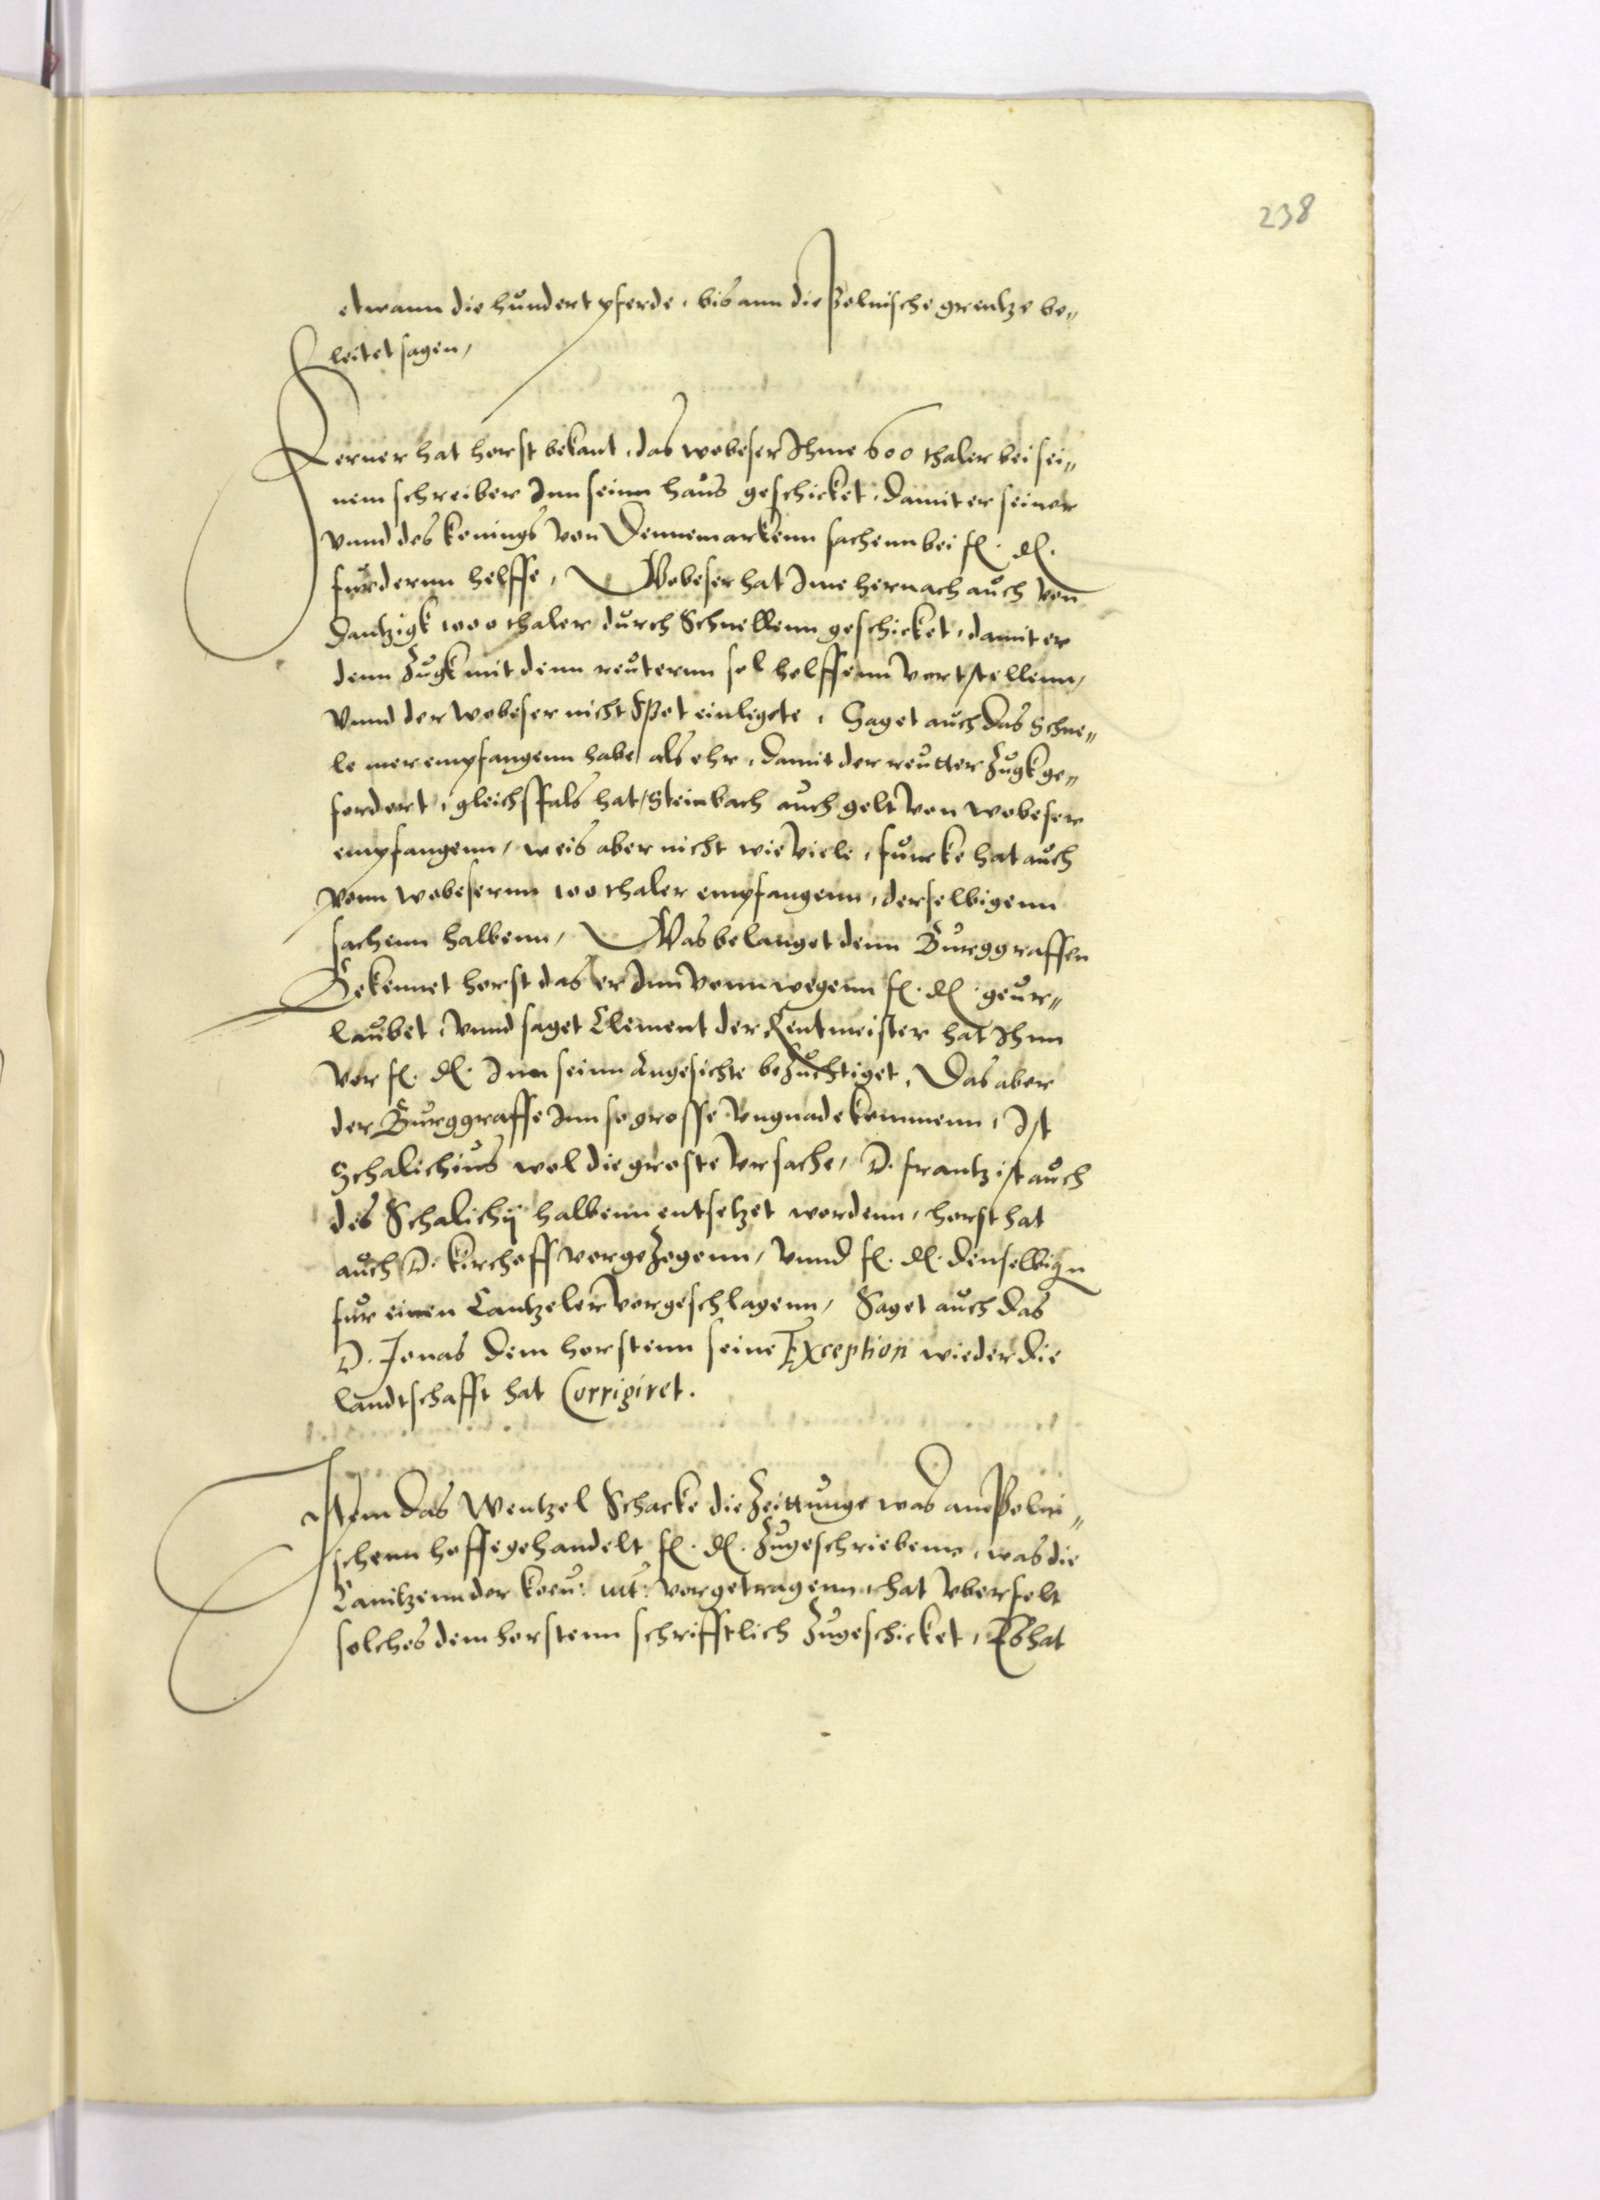 238
etwann die hundert pferde, bis ann die Polnische grentze be„
leitet sagen,
Ferner hat horst bekant, das wobeser Ihme 600 thaler bei sei„
nem schreiber Inn seinn haus geschicket, damit er seiner
vnnd des konings von Dennemarkenn sachenn bei f. d.
furdernn helffe, Wobeser hat Ime hernach auch von
Dantzigk 1000 thaler durch Schnellenn geschicket, damit er
denn Zugk mit denn reuternn sol helffenn vortstellenn,
vnnd der wobeser nicht Spot einlegete, Saget auch das Schne„
le mer empfangenn habe als ehr, damit der reutter Zugk ge„
fordert, gleichffals hat Steinbach auch gelt von wobeser
empfangenn, weis aber nicht wie viele, funcke hat auch
vonn wobesernn 100 thaler empfangenn, derselbigenn
sachenn halbenn, Was belanget denn Burggraffen
Bekennet horst das er Inn vonn wegenn f. d. geur„
laubet, vnnd saget Clement der Rentmeister hat Ihnn
vor f. d. Inn seinn angesichte bezuchtiget, Das aber
der Burggraffe Inn so grosse vngnade kommenn, Ist
Schalichius wol die groste vrsache, D. frantz ist auch
des Schalichij halbenn entsetzet wordenn, horst hat
auch D. kirchoff vorgezogenn, vnnd f. d. denselbign
fur einen Cantzeler vorgeschlagenn, Saget auch das
D. Jonas dem horstenn seine Exception wieder die
landtschafft hat Corrigiret.
Item das Wentzel Schacke die Zeittunge was am Polni„
schenn hoffe gehandelt f. d. Zugeschriebenn, was die
Canitzenn der koen: mt: vorgetragenn, hat vberfelt
solches dem horstenn schrifftlich Zugeschicket, Es hat